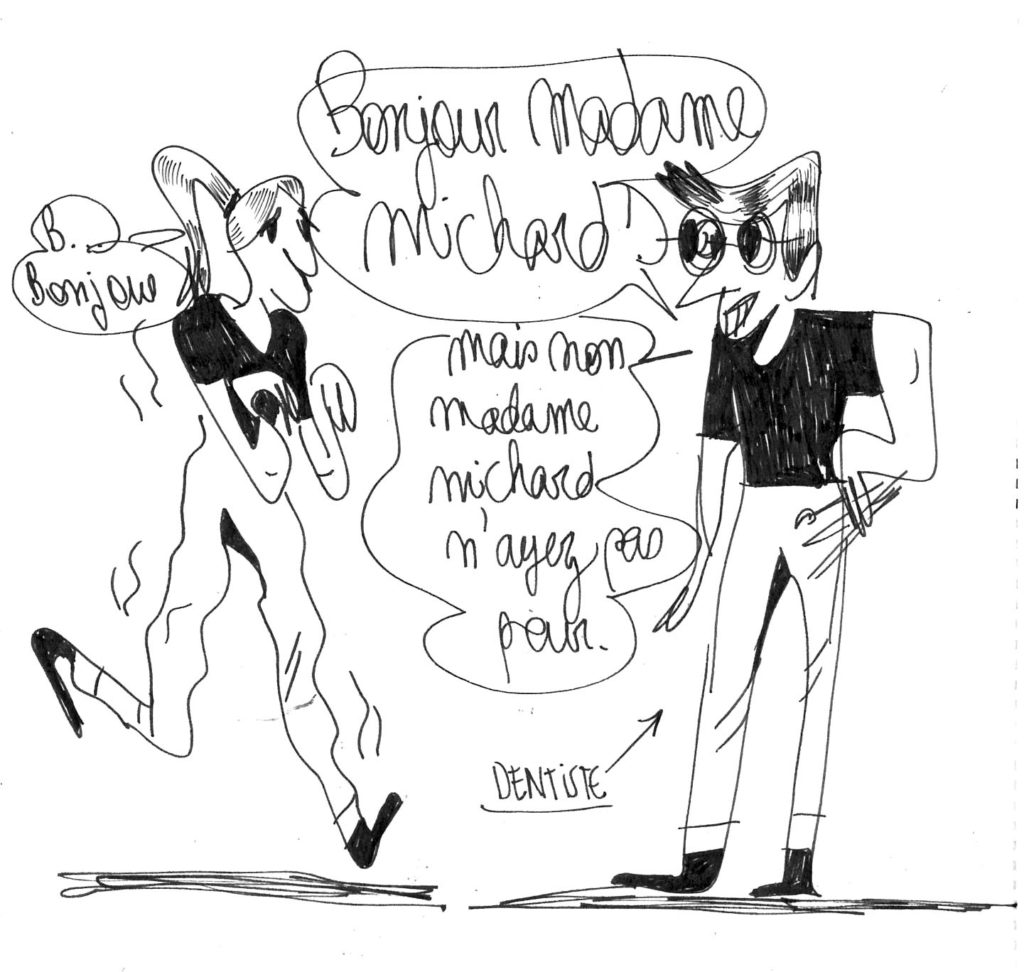 Bonjour Madame
Michard !
B..
Bonjour
mais non
madame
michard
n'ayez pas
peur.
DENTISTE